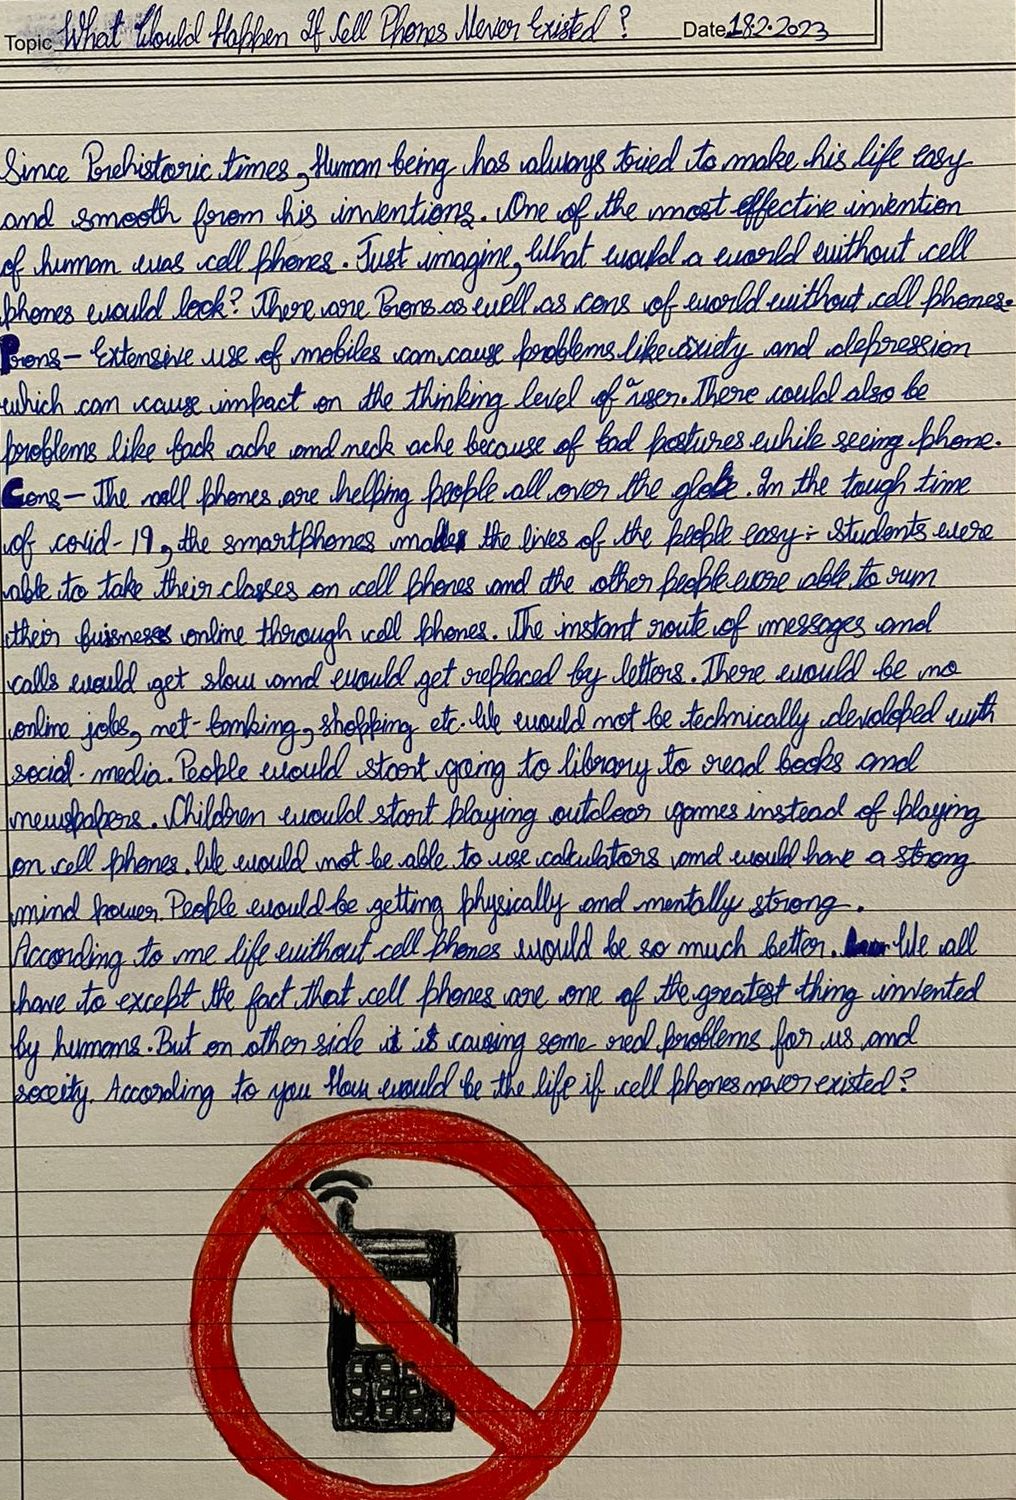 Topic What Would Happen If Cell Phones Never Existed? Date 18.2.2023
Since Prehistoric times, Human being has always tried to make his life easy
and smooth from his inventions. One of the most effective invention
of human was cell phones. Just imagine, What would a world without cell
phones would look? There are Prons as well as cons of world without cell phones.
Prons - Extensive use of mobiles can cause problems like axiety and depression
which can cause impact on the thinking level of a user. There could also be
problems like back ache and neck ache because of bad postures while seeing phone.
Cons - The cell phones are helping people all over the globe. In the tough time
of covid-19, the smartphones made the lives of the people easy :- Students were
able to take their classes on cell phones and the other people were able to run
their buisness online through cell phones. The instant route of messages and
calls would get slow and would get replaced by letters. There would be no
online jobs, net-banking, shopping etc. We would not be technically devoloped with
social-media. People would start going to library to read books and
newspapers. Children would start playing outdoor games instead of playing
on cell phones. We would not be able to use calculators and would have a strong
mind power. People would be getting physically and mentally strong.
According to me life without cell phones would be so much better. We all
have to except the fact that cell phones are one of the greatest thing invented
by humans. But on other side it is causing some real problems for us and
soceity. According to you How would be the life if cell phones never existed?